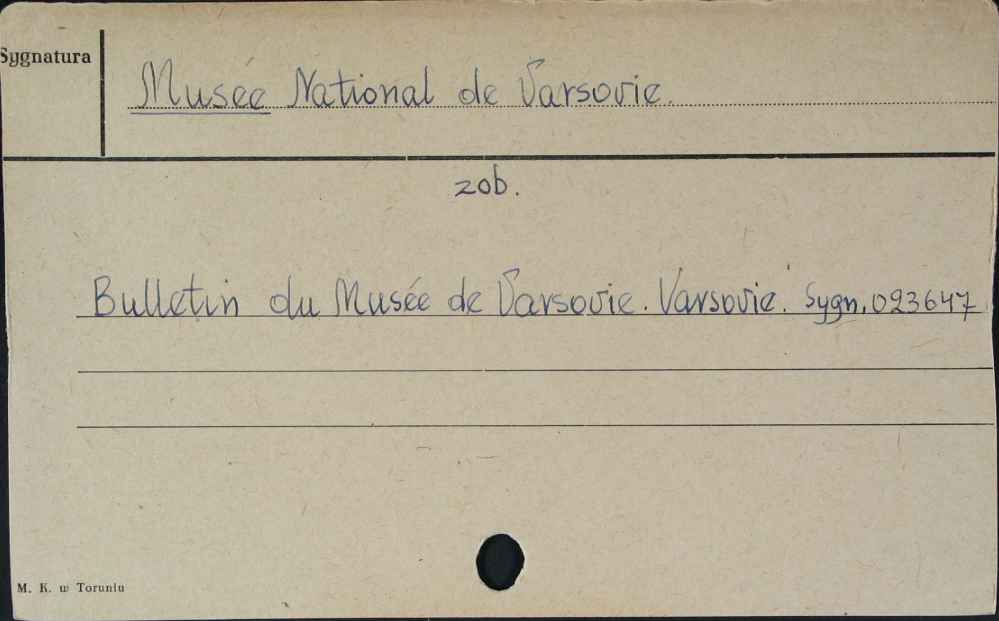 Sygnatura
Musée National de Varsovie.
zob.
Bulletin du Musée de Varsovie. Varsovie. Sygn. 023647
M. K. w Toruniu